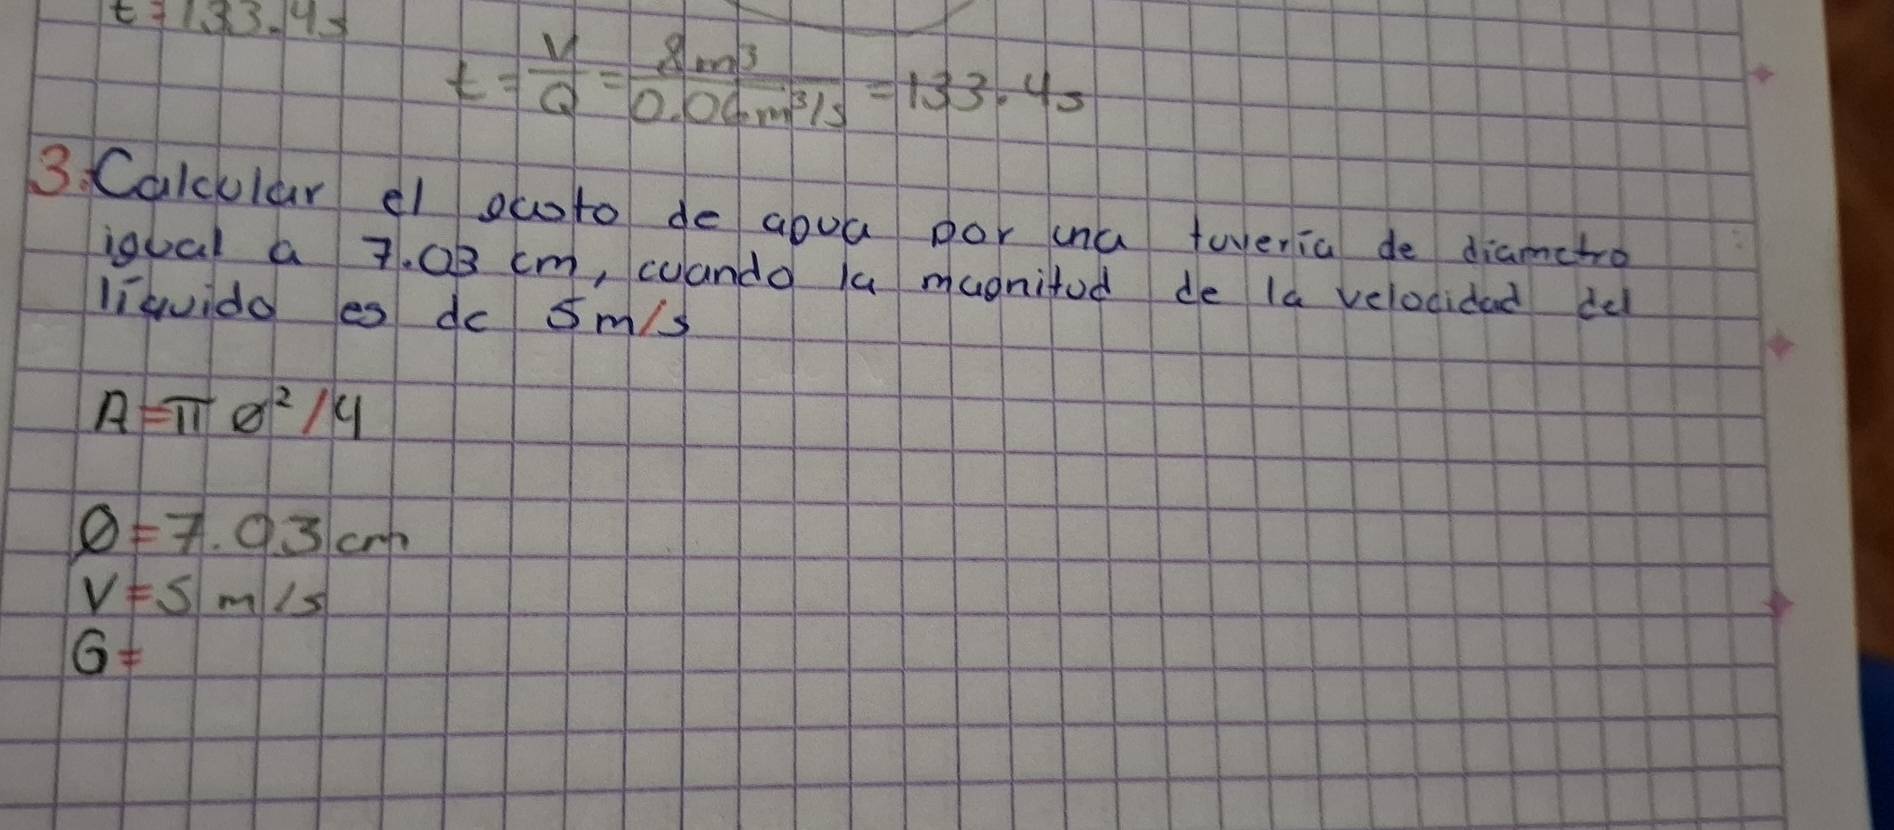 t=133.4s
t=V/Q=8m³/0.06m³/s=133.4s
3.Calcular el gasto de agua por una tuveria de diametro
igual a 7.03 cm, cuando la magnitud de la velocidad del
líquido es de 5m/s
A=π Ø²/4
Ø=7.03cm
V=5 m/s
G=